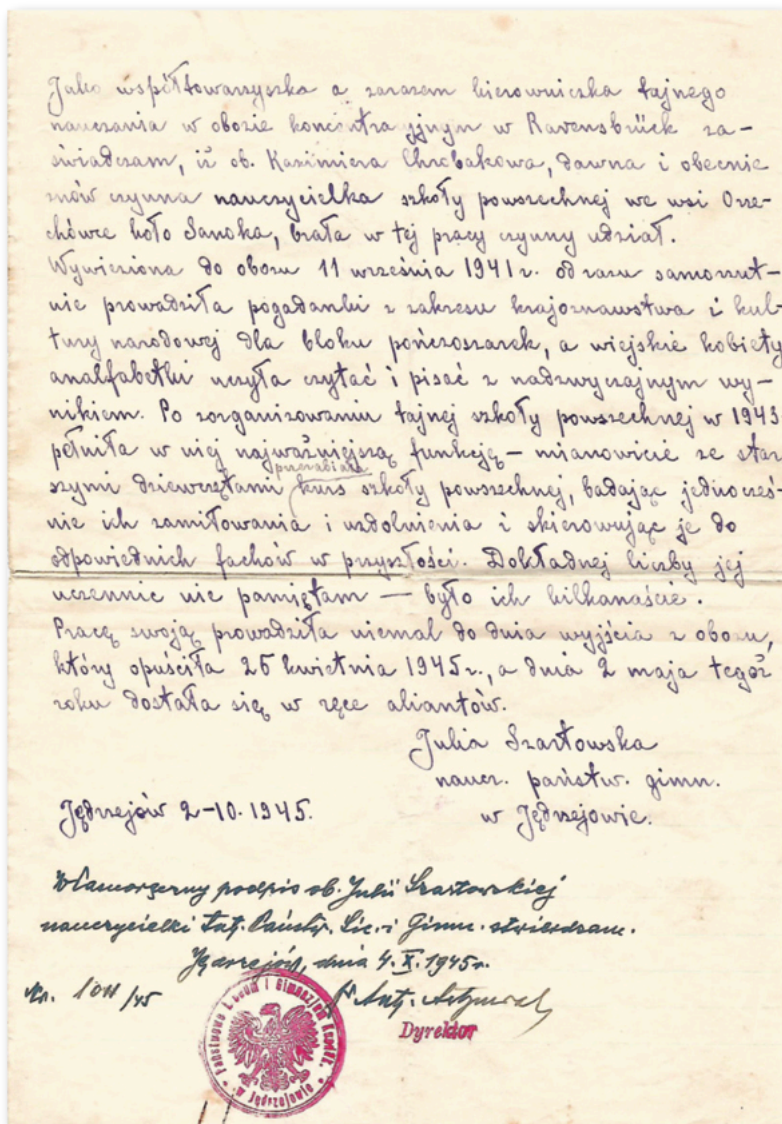 Jako współtowarzyszka a zarazem kierowniczka tajnego
nauczania w obozie koncentracyjnym w Ravensbrück za-
świadczam, iż ob. Kazimiera Chrobakowa, dawna i obecnie
znów czynna nauczycielka szkoły powszechnej we wsi Orze-
chówce koło Sanoka, brała w tej pracy czynny udział.
Wywieziona do obozu 11 września 1941 r. od razu samorzut-
nie prowadziła pogadanki z zakresu krajoznawstwa i kul-
tury narodowej dla bloku pończoszarek, a wiejskie kobiety
analfabetki uczyła czytać i pisać z nadzwyczajnym wy-
nikiem. Po zorganizowaniu tajnej szkoły powszechnej w 1943
pełniła w niej najważniejszą funkcję – mianowicie ze star
przerabiała
szymi dziewczętami kurs szkoły powszechnej, badając jednocześ-
nie ich zamiłowania i uzdolnienia i skierowując je do
odpowiednich fachów w przyszłości. Dokładnej liczby jej
uczennic nie pamiętam — było ich kilkanaście.
Pracę swoją prowadziła niemal do dnia wyjścia z obozu,
który opuściła 26 kwietnia 1945 r., a dnia 2 maja tegoż
roku dostała się w ręce aliantów.
Julia Szartowska
naucz. państw. gimn.
w Jędrzejowie.
Jędrzejów 2-10. 1945.
Własnoręczny podpis ob. Julii Szartowskiej
nauczycielki tut. Państw. Lic. i Gimn. stwierdzam.
Jędrzejów, dnia 4. X. 1945 r.
Nr. 1011/45
Dyrektor
Państwowe Liceum i Gimnazjum
w Jędrzejowie